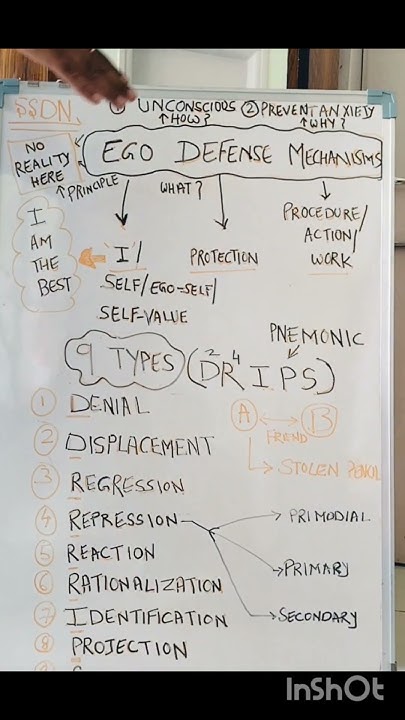 SSDN
① UNCONSCIOUS ② PREVENT ANXIETY
↑HOW? ↑WHY?
NO
REALITY
HERE
EGO DEFENSE MECHANISMS
↑PRINCIPLE
WHAT?
I
AM
THE
BEST
'I'/
SELF/EGO-SELF/
SELF-VALUE
PROTECTION
PROCEDURE/
ACTION/
WORK
PNEMONIC
9 TYPES (D²R⁴IPS)
① DENIAL
② DISPLACEMENT
③ REGRESSION
④ REPRESSION
⑤ REACTION
⑥ RATIONALIZATION
⑦ IDENTIFICATION
⑧ PROJECTION
A ↔ B
FREND
→ STOLEN PENCIL
→ PRIMODIAL
→ PRIMARY
→ SECONDARY
InShOt